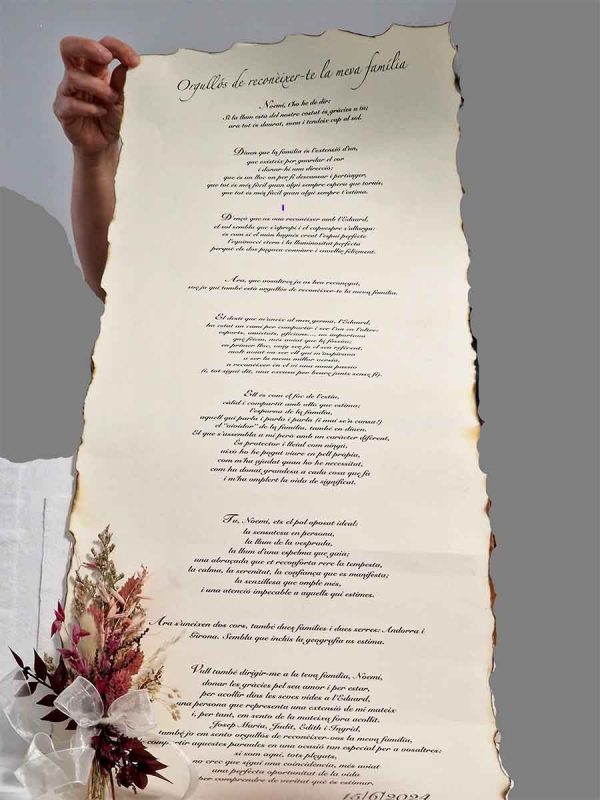 Orgullós de reconèixer-te la meva família
Noemí, t'ho he de dir:
Si la llum està del nostre costat és gràcies a tu;
ara tot és daurat, suau i tendeix cap al sol.
Diuen que la família és l'extensió d'un,
que existeix per guardar el cor
i donar-hi una direcció;
que és un lloc on per fi descansar i pertànyer,
que tot és més fàcil quan algú sempre espera que tornis,
que tot és més fàcil quan algú sempre t'estima.
D'ençà que us vau reconèixer amb l'Eduard,
el sol sembla que s'apropi i el capvespre s'allarga:
és com si el món hagués creat l'espai perfecte
l'equinocci etern i la lluminositat perfecta
perquè els dos pogueu conviure i envellir feliçment.
Ara, que vosaltres ja us heu reconegut,
soc jo qui també està orgullós de reconèixer-te la meva família.
El destí que m'uneix al meu germà, l'Eduard,
ha estat un camí per compartir i ser l'un en l'altre:
esports, amistats, aficions..., no importava
què fèiem, més aviat que hi fóssim;
en primer lloc, vaig ser jo el seu referent,
molt aviat va ser ell qui m'inspirava
a ser la meva millor versió,
a reconèixer en el vi una nova passió
(i, tot sigui dit, una excusa per beure junts sense fi).
Ell és com el foc de l'estiu,
càlid i compartit amb allò que estima;
l'espurna de la família,
aquell qui parla i parla i parla (i mai se'n cansa!)
el "aixidor" de la família, també en diuen.
El que s'assembla a mi però amb un caràcter diferent,
És protector i lleial com ningú,
això ho he pogut viure en pell pròpia,
com m'ha ajudat quan ho he necessitat,
com ha donat grandesa a cada cosa que fa
i m'ha omplert la vida de significat.
Tu, Noemí, ets el pol oposat ideal:
la sensatesa en persona,
la llum de la vesprada,
la llum d'una espelma que guia;
una abraçada que et reconforta rere la tempesta,
la calma, la serenitat, la confiança que es manifesta;
la senzillesa que omple més,
i una atenció impecable a aquells qui estimes.
Ara s'uneixen dos cors, també dues famílies i dues serres: Andorra i
Girona. Sembla que inclús la geografia us estima.
Vull també dirigir-me a la teva família, Noemí,
donar les gràcies pel seu amor i per estar,
per acollir dins les seves vides a l'Eduard,
una persona que representa una extensió de mi mateix
i, per tant, em sento de la mateixa fora acollit.
Josep Maria, Judit, Edith i Ingrid,
també jo em sento orgullós de reconèixer-vos la meva família,
compartir aquestes paraules en una ocasió tan especial per a vosaltres:
si som aquí, tots plegats,
no crec que sigui una coincidència, més aviat
una perfecta oportunitat de la vida
per comprendre de veritat què és estimar.
15/6/2024